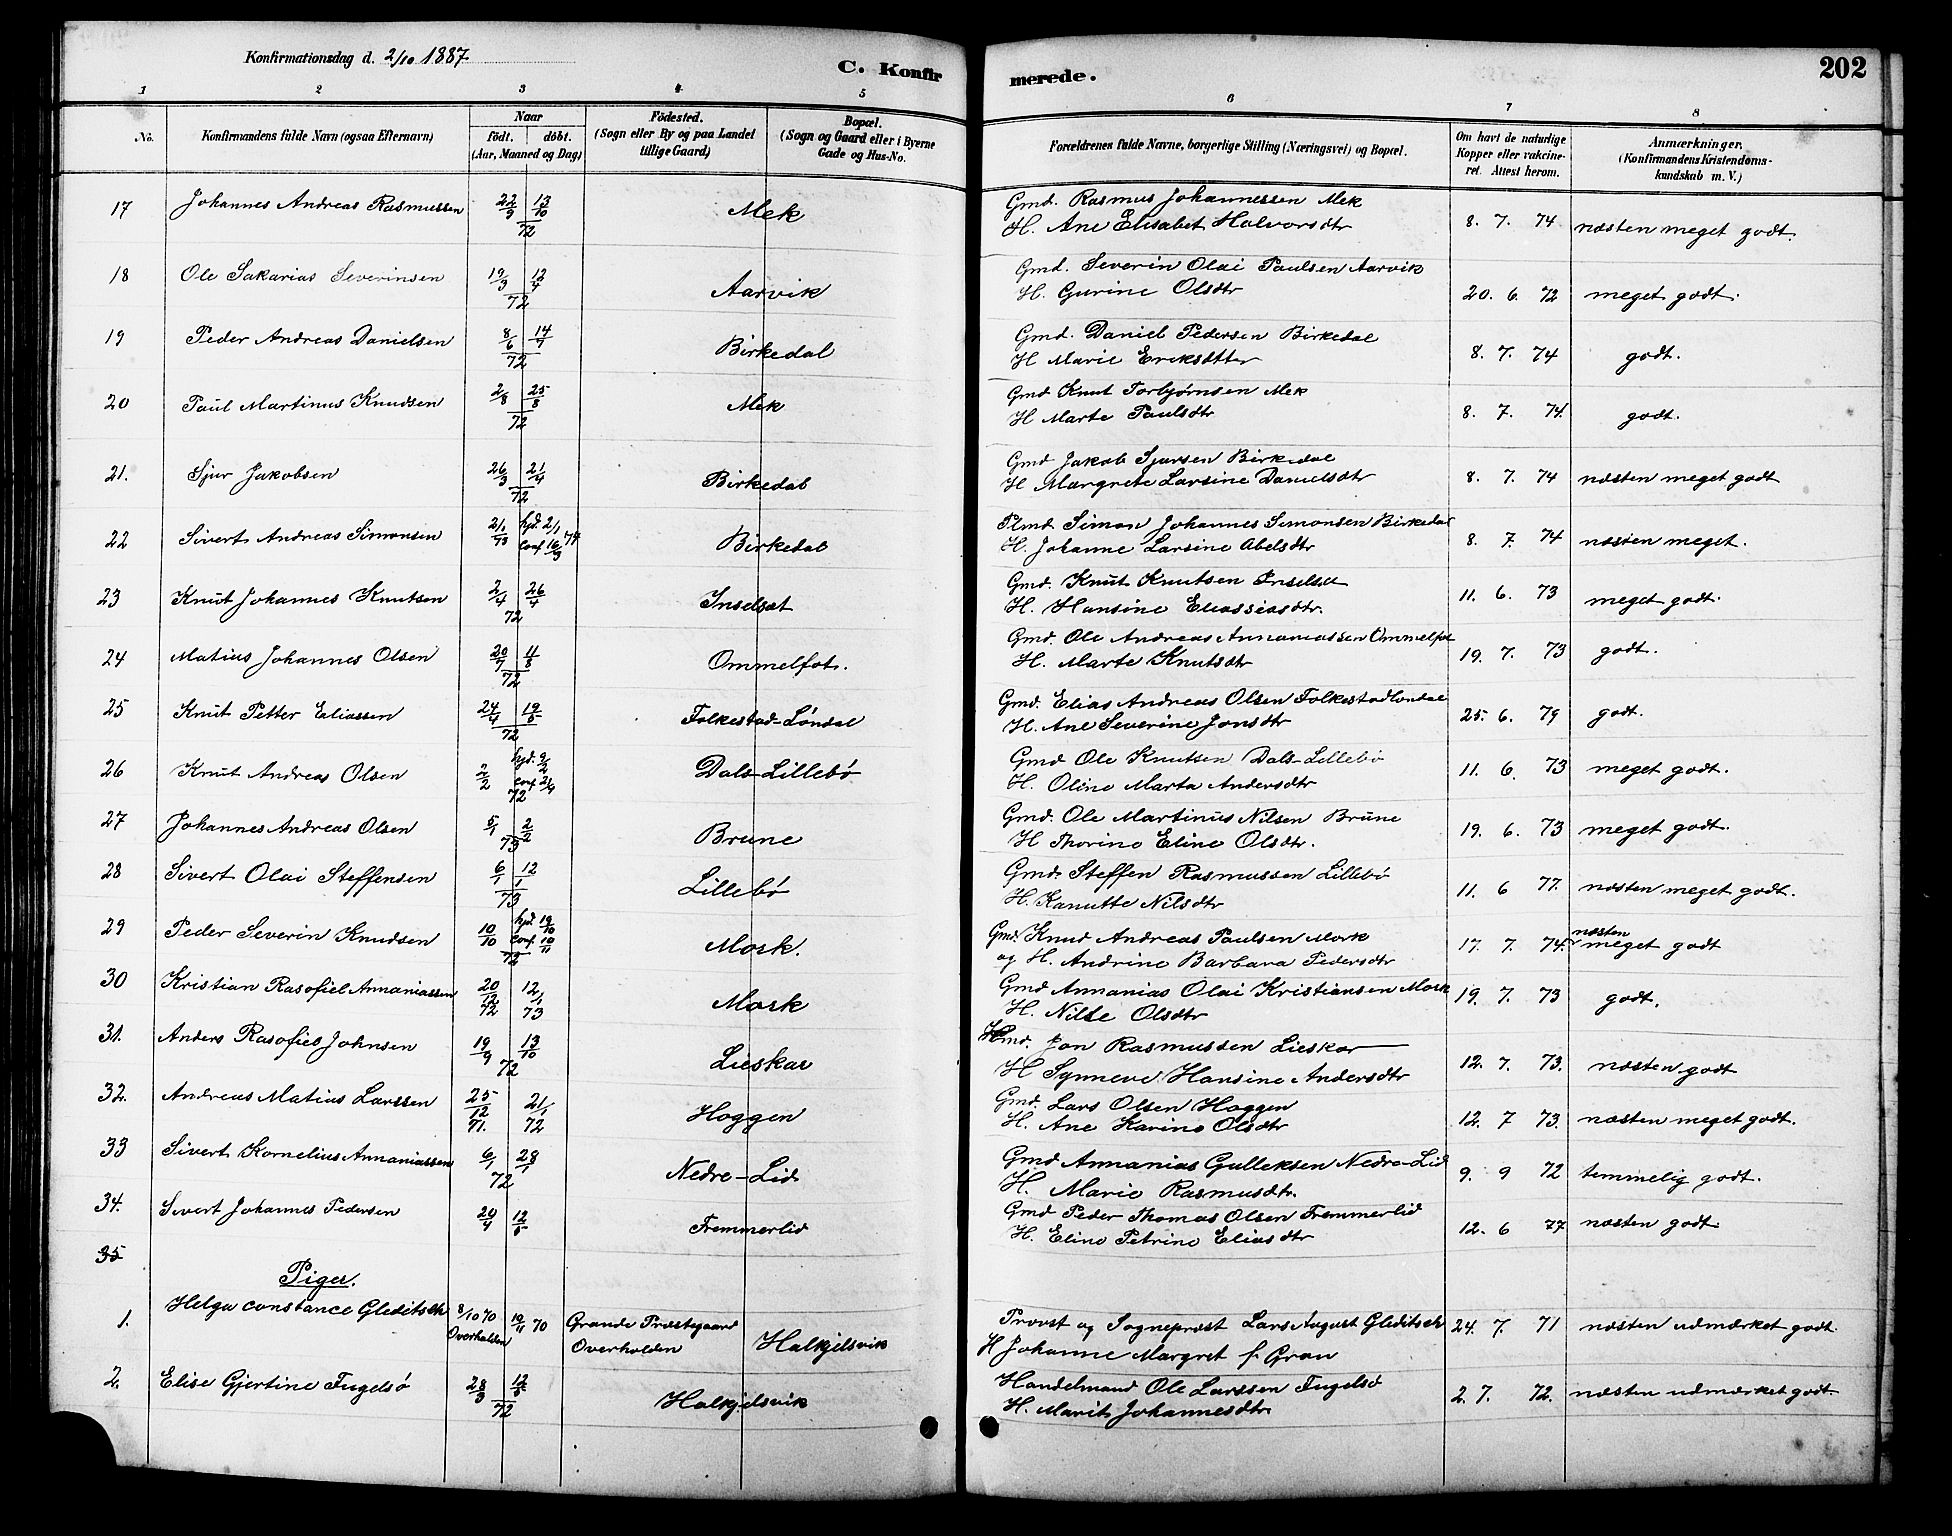 Konfirmationsdag d. 2/10 1887
C. Konfirmerede.
202
1 2 3 4 5 6 7 8
No. | Konfirmandens fulde Navn (ogsaa Efternavn) | Naar födt. döbt. (Aar, Maaned og Dag) | Födested. (Sogn eller By og paa Landet tillige Gaard) | Bopæl. (Sogn og Gaard eller i Byerne Gade og Hus-No. | Forældrenes fulde Navne, borgerlige Stilling (Næringsvei) og Bopæl. | Om havt de naturlige Kopper eller vakcineret. Attest herom. | Anmærkninger. (Konfirmandens Kristendomskundskab m. V.)
17 Johannes Andreas Rasmussen 22/9 13/10 72 Mek Gmd. Rasmus Johannessen Mek 8. 7. 74 næsten meget godt.
H. Ane Elisabet Halvorsdtr
18 Ole Sakarias Severinsen 19/3 12/4 72 Aarvik Gmd. Severin Olai Paulsen Aarvik 20. 6. 72 meget godt.
H. Gurine Olsdtr
19 Peder Andreas Danielsen 8/6 14/7 72 Birkedal Gmd. Daniel Pedersen Birkedal 8. 7. 74 godt.
H Marie Eriksdtter
20 Paul Martinus Knudsen 2/8 25/8 72 Mek Gmd Knut Torbjørnsen Mek 8. 7. 74. godt.
H Marte Paulsdtr
21. Sjur Jakobsen 26/3 21/4 72 Birkedal Gmd Jakob Sjursen Birkedal 8. 7. 74 næsten meget godt
H Margrete Larsine Danielsdtr
22 Sivert Andreas Simonsen hjd. 2/1 conf 16/3 74 Birkedal Plmd Simon Johannes Simonsen Birkedal 8. 7. 74 næsten meget.
H. Johanne Larsine Abelsdtr
23 Knut Johannes Knutsen 2/4 26/4 72 Inselset Gmd. Knut Knutsen Inselset 11. 6. 73 meget godt.
H. Hansine Eliassiasdtr.
24 Matius Johannes Olsen 20/7 11/8 72 Ommelfot. Gmd. Ole Andreas Annaniassen Ommelfot 19. 7. 73 godt.
H. Marte Knutsdtr
25 Knut Petter Eliassen 24/4 19/5 72 Folkestad-Løndal Gmd. Elias Andreas Olsen Folkestadlondal 25. 6. 79 godt.
H. Ane Severine Jonsdtr
26 Knut Andreas Olsen 2/2 hjd. 9/2 conf 21/4 72 Dals-Lillebø Gmd Ole Knutsen Dals-Lillebø 11. 6. 73 meget godt.
H. Oline Marta Andersdtr
27 Johannes Andreas Olsen 5/1 2/2 73 Brune Gmd. Ole Martinus Nilsen Brune 19. 6. 73 meget godt.
H Thorine Eline Olsdtr.
28 Sivert Olai Steffensen 6/1 12/1 73 Lillebø Gmd. Steffen Rasmussen Lillebø 11. 6 77. næsten meget godt.
H. Kanutte Nilsdtr
29 Peder Severin Knudsen 10/10 hjd 19/10 conf. 10/11 72 Mork. Gmd. Knud Andreas Paulsen Mork 17. 7. 74. næsten meget godt
og H. Andrine Barbara Pedersdtr
30 Kristian Rasofiel Annaniassen 20/12 72 12/1 73 Mork Gmd Annanias Olai Kristiansen Mork 19. 7. 73 godt.
H. Nille Olsdtr
31. Anders Rasofiel Johnsen 19/9 13/10 72 Lieskar Gmd. Jon Rasmussen Lieskar 12. 7. 73. næsten godt
H Synneve Hansine Andersdtr
32. Andreas Matius Larssen 25/12 71. 21/1 72 Hoggen Gmd. Lars Olsen Hoggen 12. 7 73. næsten meget godt.
H. Ane Karine Olsdtr
33 Sivert Kornelius Annaniassen 6/1 28/1 72 Nedre-Lid Gmd Annanias Gulleksen Nedre-Lid 9. 9 72 temmelig godt.
H. Marie Rasmusdtr.
34. Sivert Johannes Pedersen 20/4 12/5 Fremmerlid Gmd Peder Thomas Olsen Fremmerlid 12. 6 77 næsten godt.
H. Eline Petrine Eliasdtr
35
Piger.
1. Helga constance Gleditsch 8/10 70 Overhalden 19/11 70 Grande Præstegaard Overhalden Halkjelsvik Provst og Sogneprest Lars August Gleditsch 24. 7. 71 næsten udmærket godt
H Johanne Margret f. Gran
2. Elise Gjertine Fugelsø 28/3 12/5 72 Halkjelsvik Handelmand Ole Larssen Fugelsø 2. 7. 72. næsten udmærket godt
H. Marit Johannesdtr.